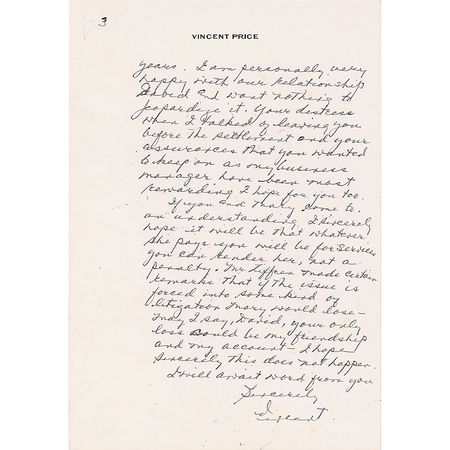 3
VINCENT PRICE
years. I am personally very
happy with our relationship
David and want nothing to
jeopardize it. Your distress
when I talked of leaving you
before the settlement and your
assurances that you wanted
to keep on as my business
manager have been most
rewarding I hope for you too.
If you and Mary come to
an understanding, I sincerely
hope it will be that whatever
she pays you will be for services
you can render her, not a
penalty. Mr. made certain
remarks that if the issue is
forced into some kind of
litigation Mary would lose-
may I say, David, your only
loss would be my friendship
and my account- I hope
sincerely this does not happen.
I will await word from you
Sincerely
Vincent.